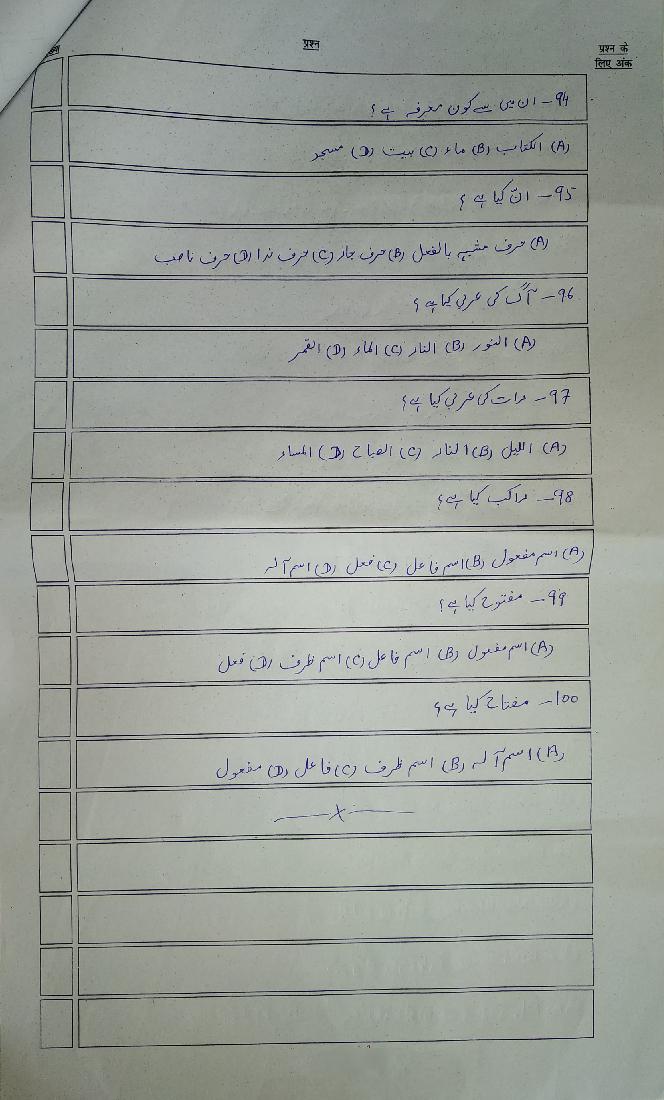 प्रश्न
प्रश्न के
लिए अंक
94- ان میں سے کون معرفہ ہے؟
(A) الکتاب (B) ماء (C) بیت (D) مسجد
95- انّ کیا ہے؟
(A) حرف مشبہ بالفعل (B) حرف جار (C) حرف ندا (D) حرف ناصب
96- آگ کی عربی کیا ہے؟
(A) النور (B) النار (C) الماء (D) القمر
97- رات کی عربی کیا ہے؟
(A) اللیل (B) النار (C) الصباح (D) المساء
98- راکب کیا ہے؟
(A) اسم مفعول (B) اسم فاعل (C) فعل (D) اسم آلہ
99- مفتوح کیا ہے؟
(A) اسم مفعول (B) اسم فاعل (C) اسم ظرف (D) فعل
100- مفتاح کیا ہے؟
(A) اسم آلہ (B) اسم ظرف (C) فاعل (D) مفعول